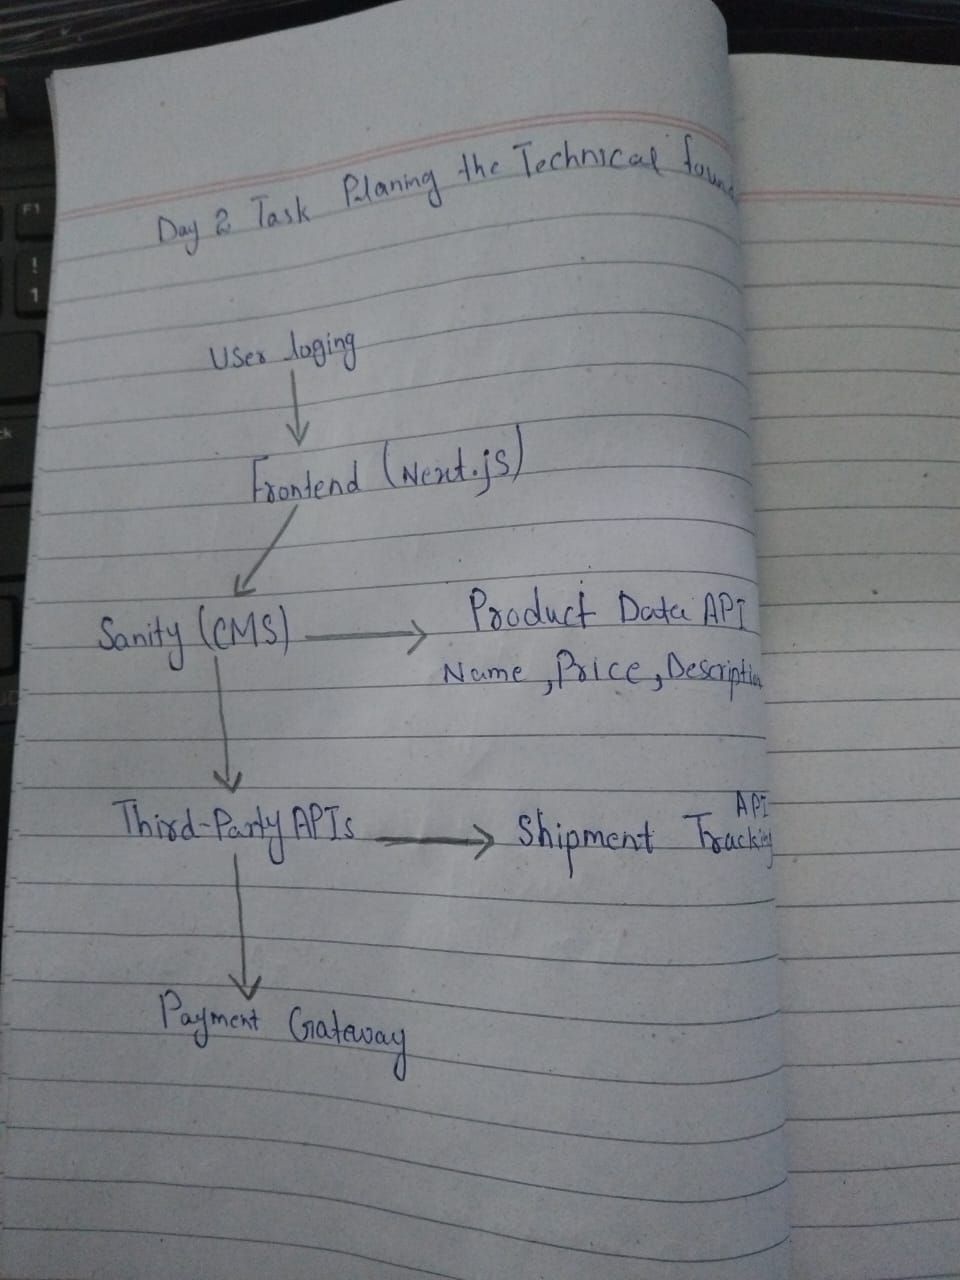 Day 2 Task Planing the Technical foun
User loging
Frontend (Next.js)
Sanity (CMS)
Product Data API
Name, Price, Description
Third-Party APIs
Shipment Tracking API
Payment Gateway
F1
!
1